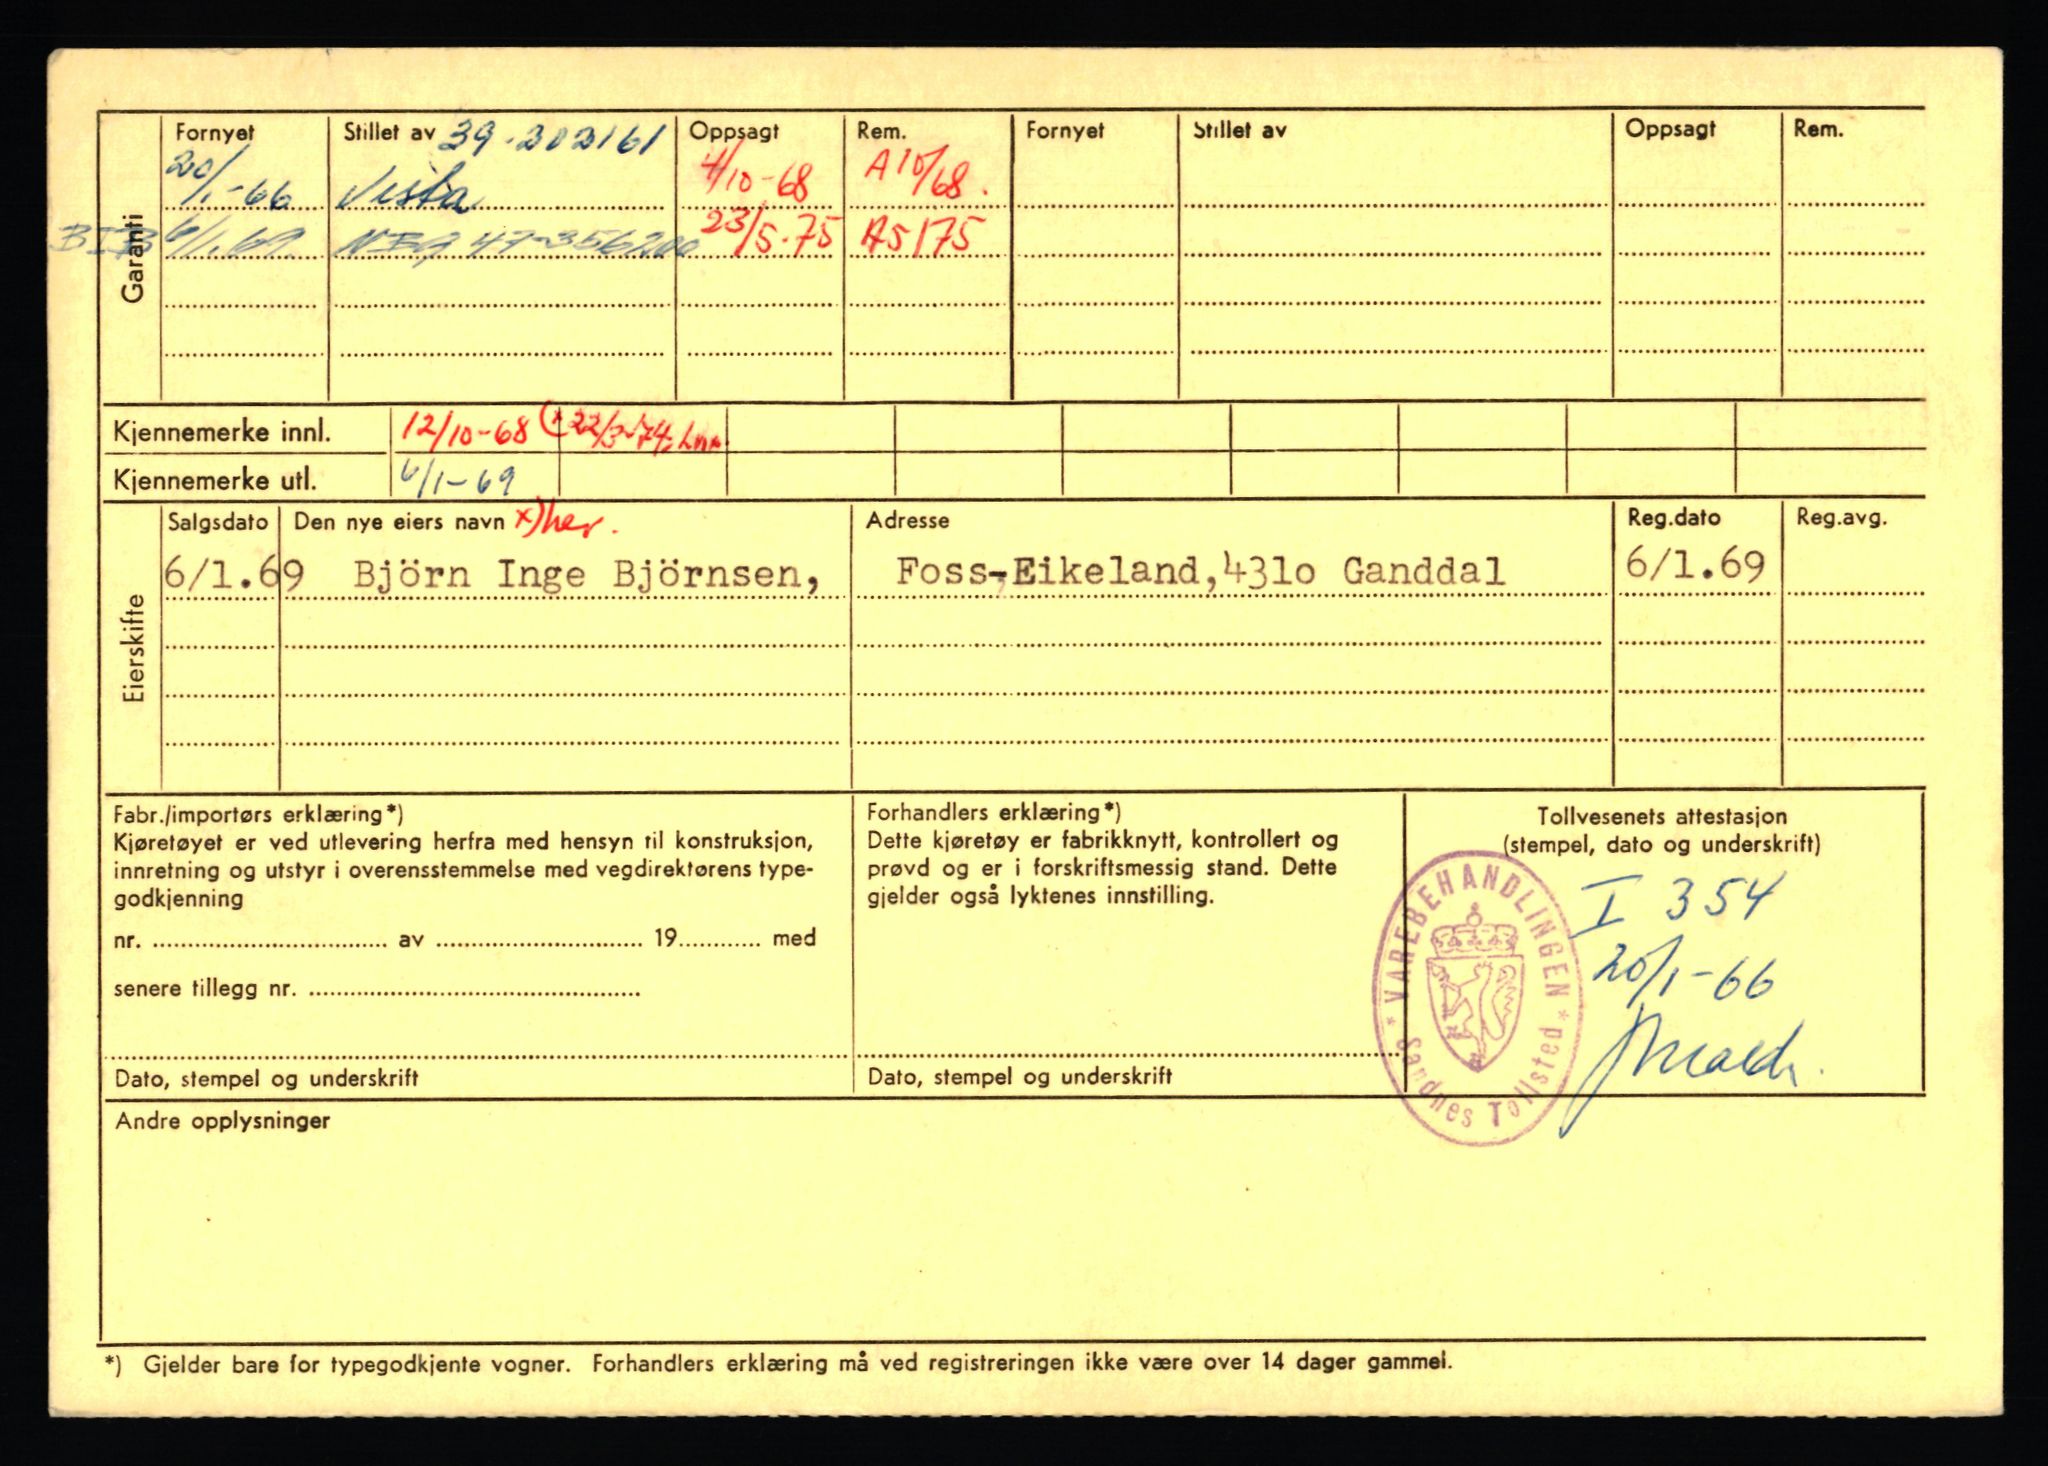 Garanti
Fornyet Stillet av 39-202161 Oppsagt Rem. Fornyet Stillet av Oppsagt Rem.
20/1-66 Vesta 4/10-68 A 10/68.
6/1.69. 47-356200 23/5.75 A5/75
Kjennemerke innl. 12/10-68 (x 22/3-74,
Kjennemerke utl. 6/1-69
Eierskifte
Salgsdato Den nye eiers navn x) her. Adresse Reg.dato Reg.avg.
6/1.69 Björn Inge Björnsen, Foss-Eikeland, 431o Ganddal 6/1.69
Fabr./importørs erklæring*)
Kjøretøyet er ved utlevering herfra med hensyn til konstruksjon,
innretning og utstyr i overensstemmelse med vegdirektørens type-
godkjenning
nr. .................. av .................. 19............ med
senere tillegg nr. ..................
Dato, stempel og underskrift
Forhandlers erklæring*)
Dette kjøretøy er fabrikknytt, kontrollert og
prøvd og er i forskriftsmessig stand. Dette
gjelder også lyktenes innstilling.
Dato, stempel og underskrift
Tollvesenets attestasjon
(stempel, dato og underskrift)
I 354
20/1-66
* VAREBEHANDLINGEN *
Sandnes Tollsted
Andre opplysninger
*) Gjelder bare for typegodkjente vogner. Forhandlers erklæring må ved registreringen ikke være over 14 dager gammel.